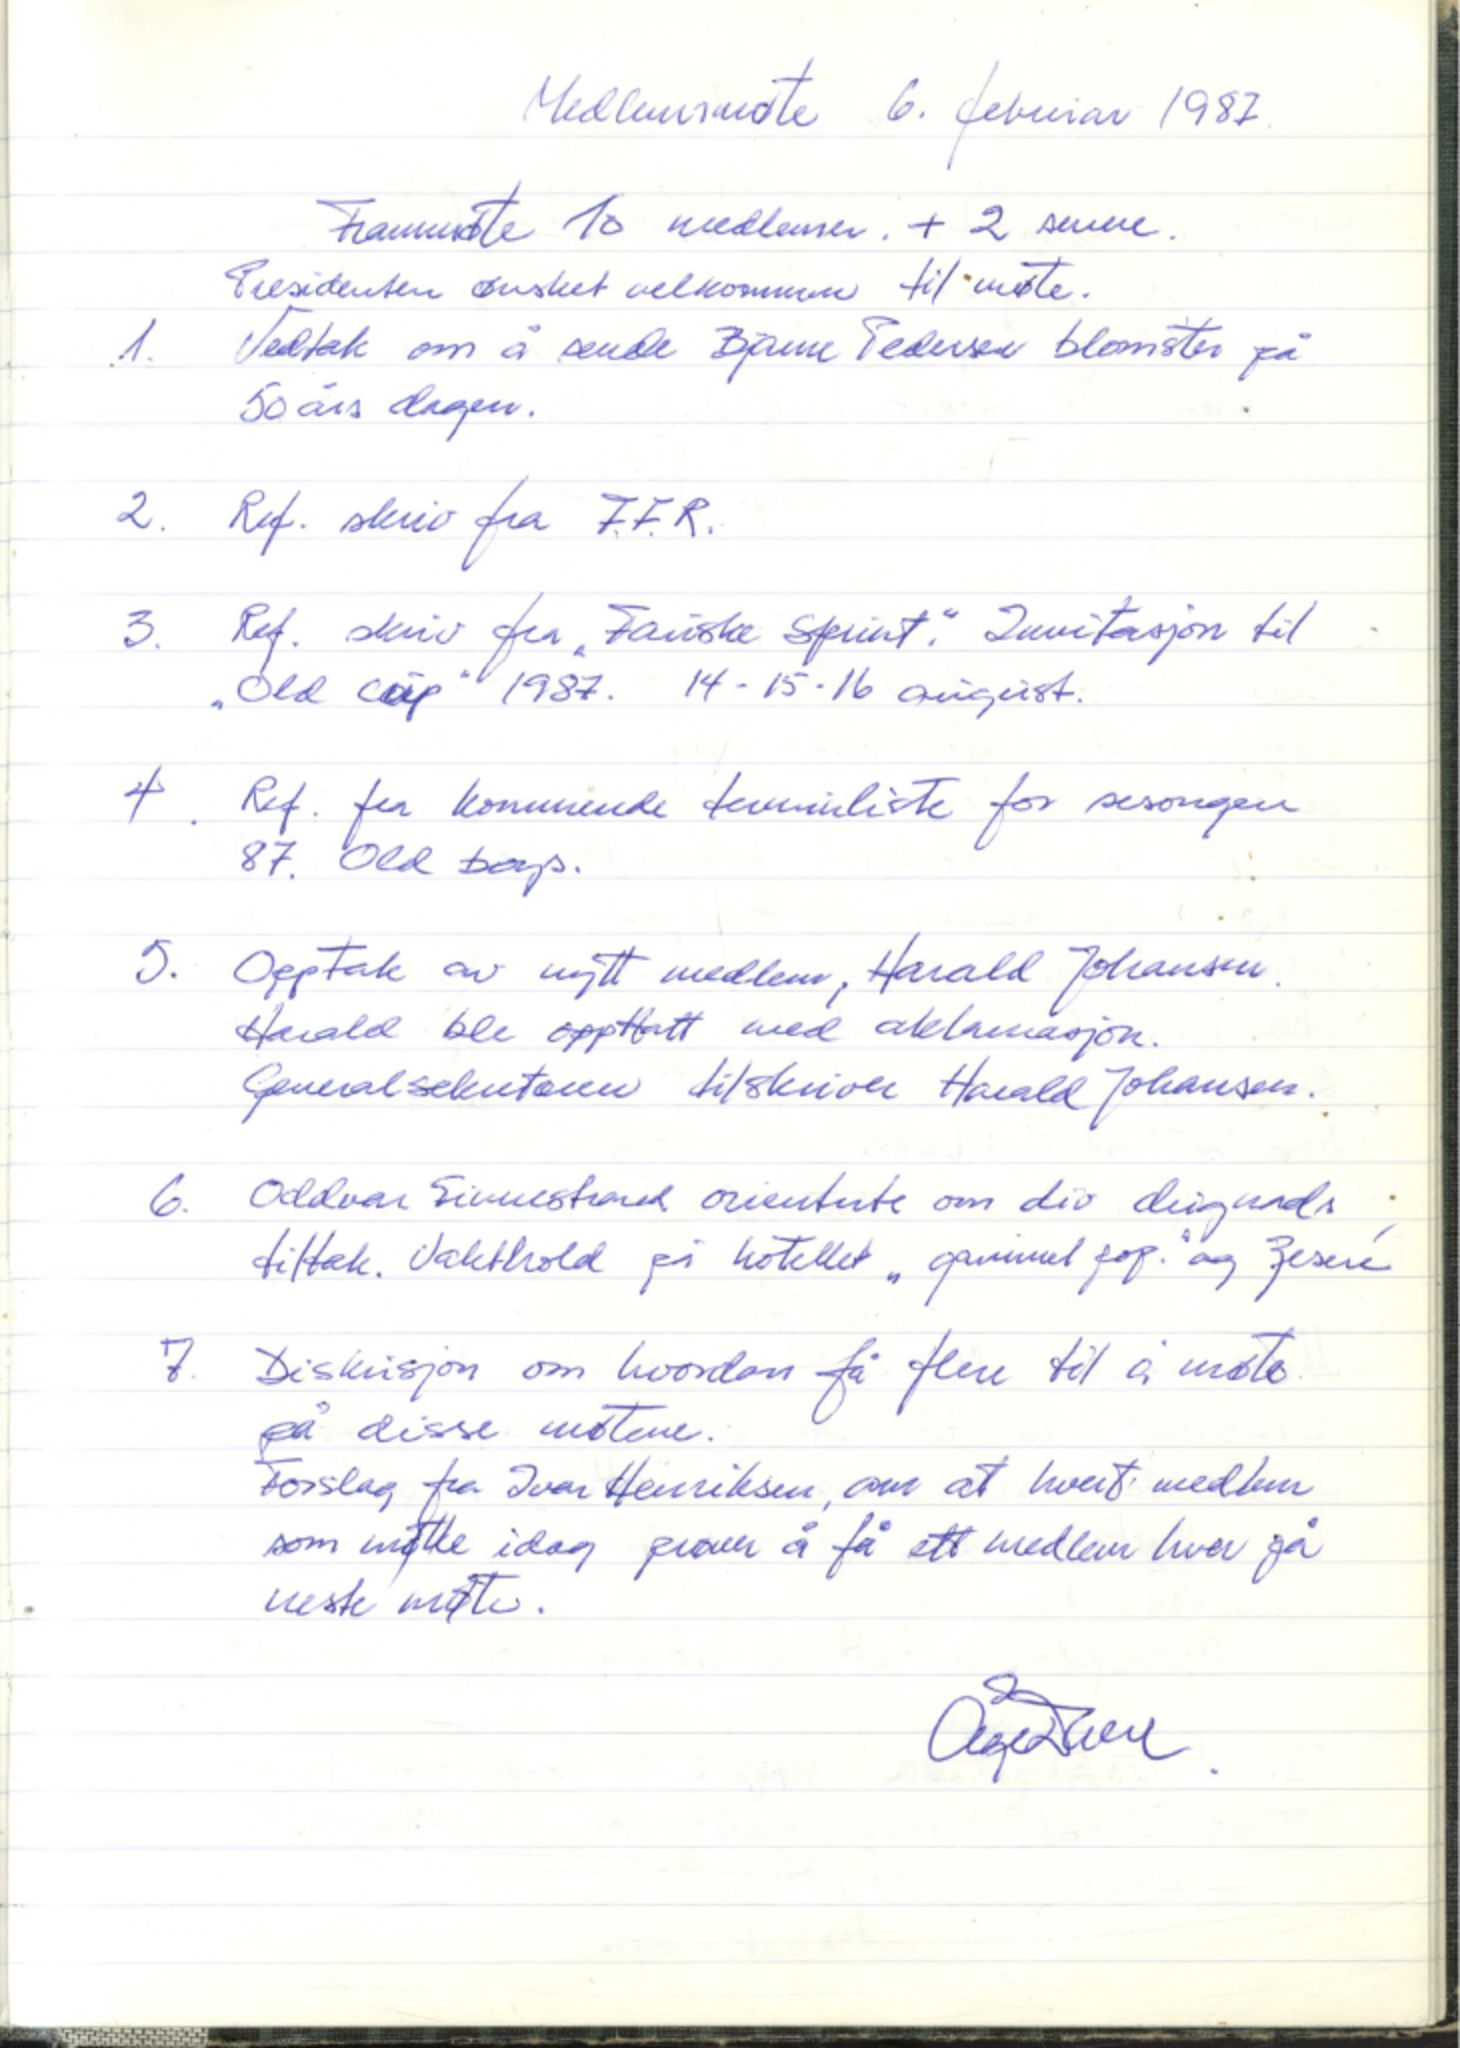 Medlemsmøte 6. februar 1987.
Frammøte 10 medlemer. + 2 senere.
Presidenten ønsket velkommen til møte.
1. Vedtak om å sende Bjarne Pedersen blomster på
50 års dagen.
2. Ref. skriv fra F.F.R.
3. Ref. skriv fra „Fauske Sprint“. Invitasjon til
„Old Cup“ 1987. 14-15-16 august.
4. Ref. fra kommende terminliste for sesongen
87. Old boys.
5. Opptak av nytt medlem, Harald Johansen.
Harald ble opptatt med aklamasjon.
Generalsekretæren tilskriver Harald Johansen.
6. Oddvar Finnestrand orienterte om div dugnads
tiltak. Vakthold på hotellet „gammel pop.“ og
7. Diskusjon om hvordan få flere til å møte
på disse møtene.
Forslag fra Ivar Henriksen, om at hvert medlem
som møtte idag prøver å få ett medlem hver på
neste møte.